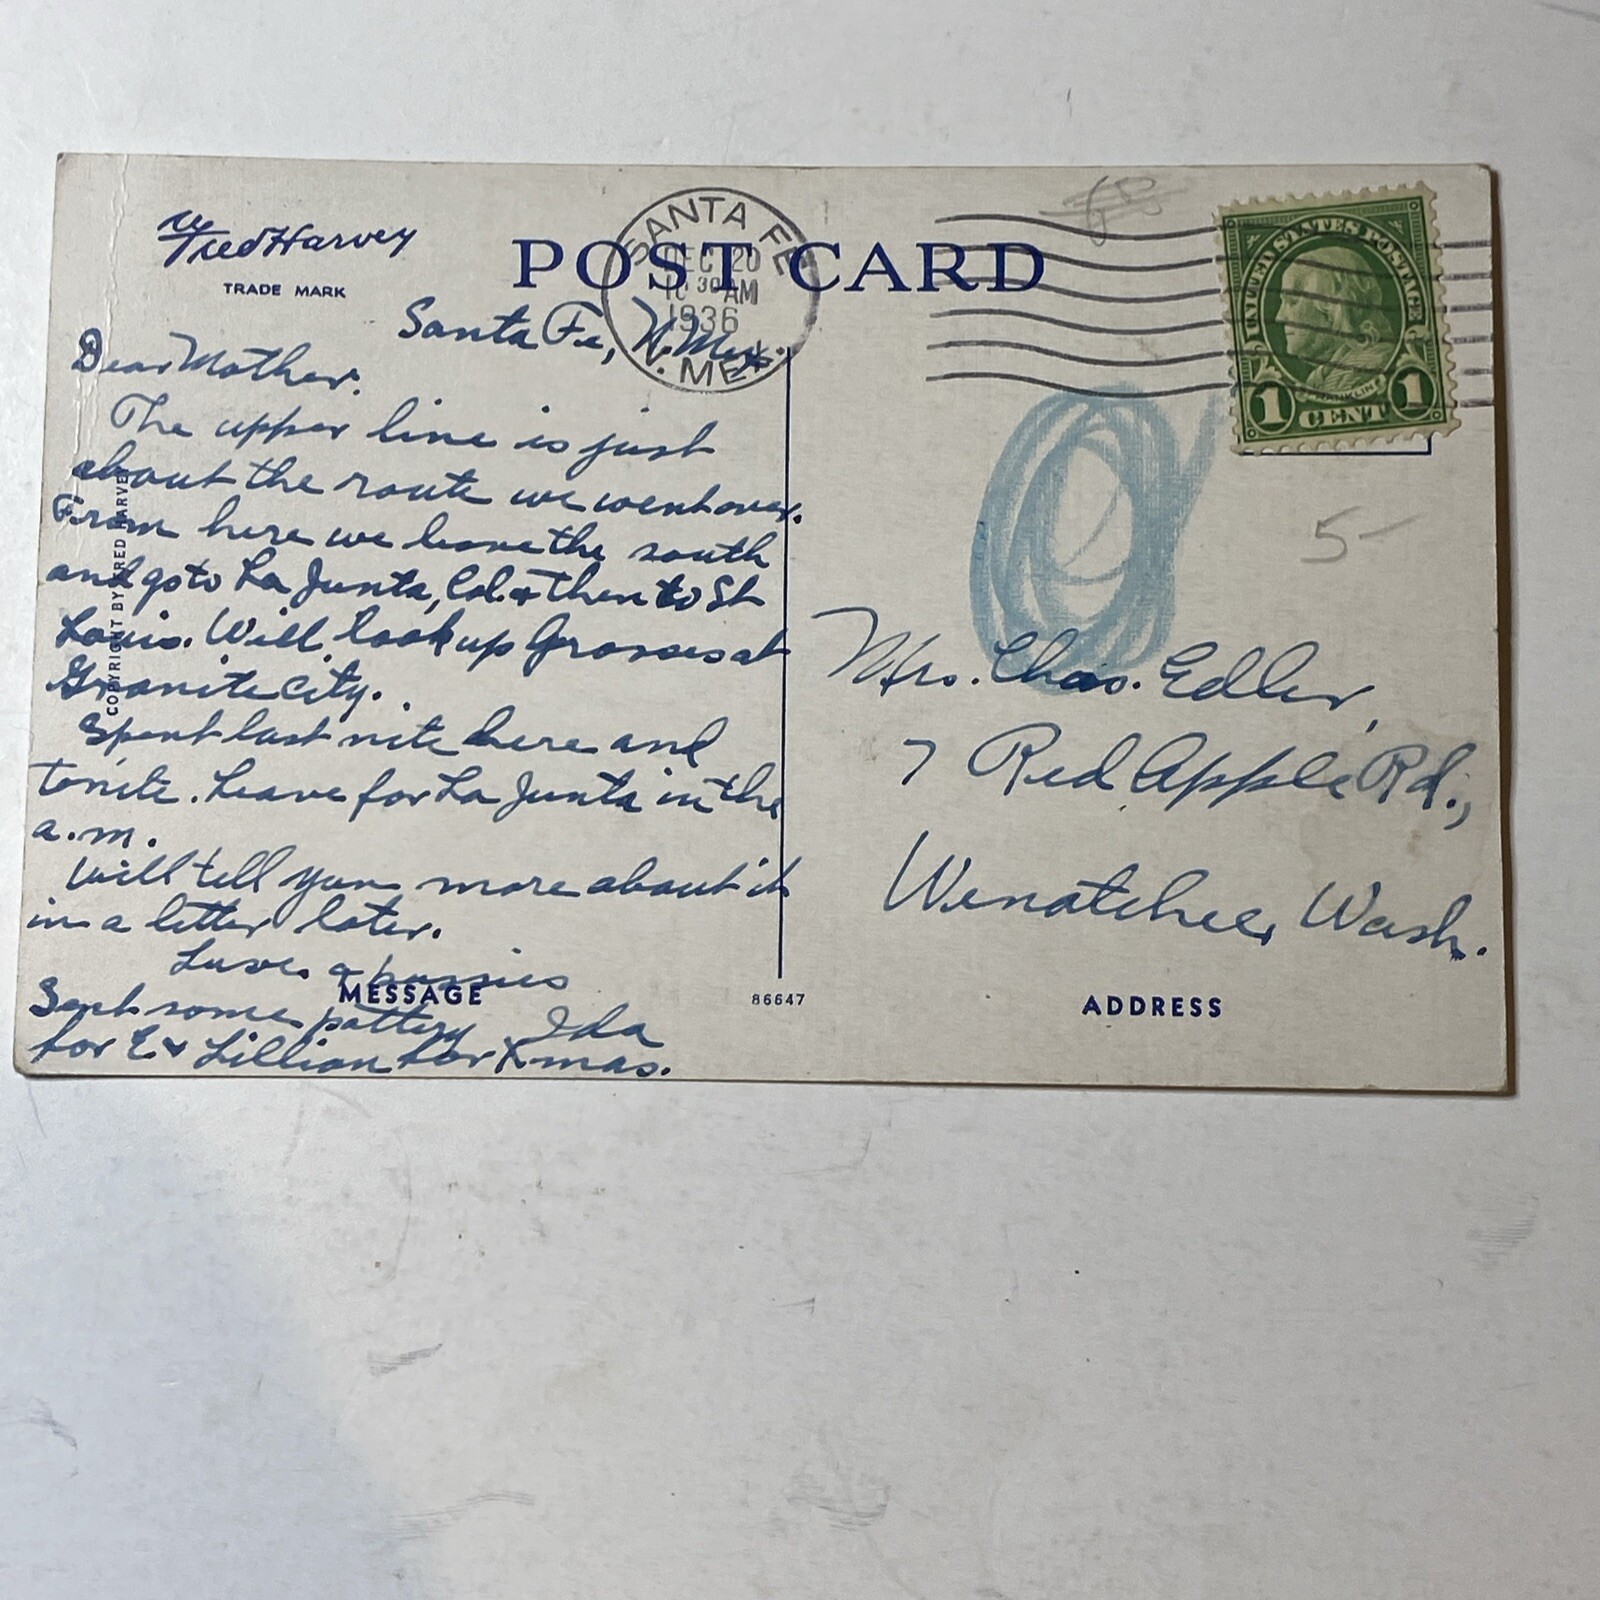 Fred Harvey
TRADE MARK
POST CARD
SANTA FE
DEC 20
10 30 AM
1936
N. MEX.
UNITED STATES POSTAGE
FRANKLIN
1 CENT 1
COPYRIGHT BY FRED HARVEY
Santa Fe, N. Mex.
Dear Mother.
The upper line is just
about the route we went over.
From here we leave the south
and go to La Junta, Col. & then to St
Louis. Will look up Grosses at
Granite City.
Spent last nite here and
tonite. Leave for La Junta in the
a.m.
Will tell you more about it
in a letter later.
Love &
Ida
Sent some pottery
for E & Lillian for Xmas.
MESSAGE
86647
5-
Mrs. Chas. Edler,
7 Red Apple Rd.,
Wenatchee, Wash.
ADDRESS